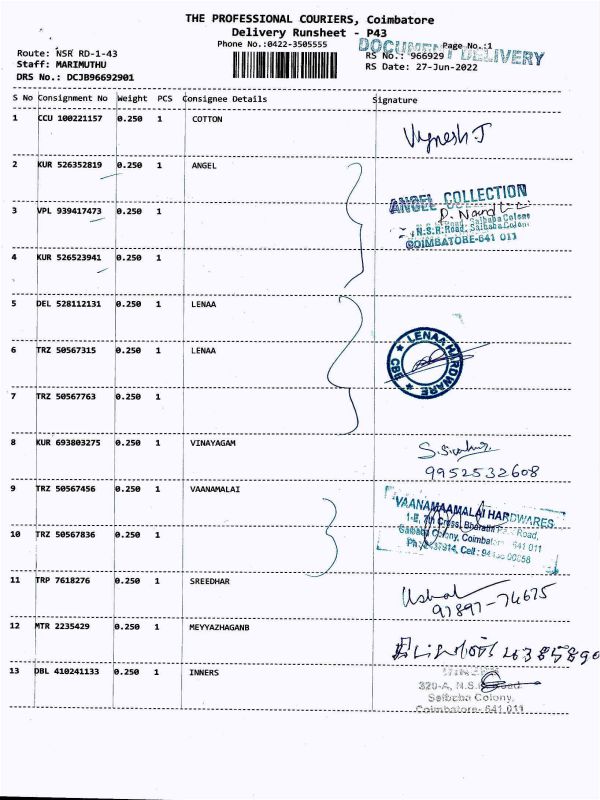 THE PROFESSIONAL COURIERS, Coimbatore
Delivery Runsheet - P43
Phone No.:0422-3505555
DOCUMENT DELIVERY
Page No.:1
Route: NSR RD-1-43
RS No.: 966929
Staff: MARIMUTHU
RS Date: 27-Jun-2022
DRS No.: DCJB96692901
S No Consignment No Weight PCS Consignee Details Signature
1 CCU 100221157 0.250 1 COTTON
Vignesh J
2 KUR 526352819 0.250 1 ANGEL
ANGEL COLLECTION
3 VPL 939417473 0.250 1
N.S.R.Road, Saibaba Colony
COIMBATORE-641 011
4 KUR 526523941 0.250 1
5 DEL 528112131 0.250 1 LENAA
6 TRZ 50567315 0.250 1 LENAA
LENAA HARDWARE
CBE
7 TRZ 50567763 0.250 1
8 KUR 693803275 0.250 1 VINAYAGAM
9952532608
9 TRZ 50567456 0.250 1 VAANAMALAI
VAANAMAAMALAI HARDWARES
1-E, 7th Cross, Bharathi Road,
10 TRZ 50567836 0.250 1
Saibaba Colony, Coimbatore 641 011
11 TRP 7618276 0.250 1 SREEDHAR
97897-74675
12 MTR 2235429 0.250 1 MEYYAZHAGANB
13 DBL 410241133 0.250 1 INNERS
320-A, N.S.R. Road
Saibaba Colony,
Coimbatore-641 011